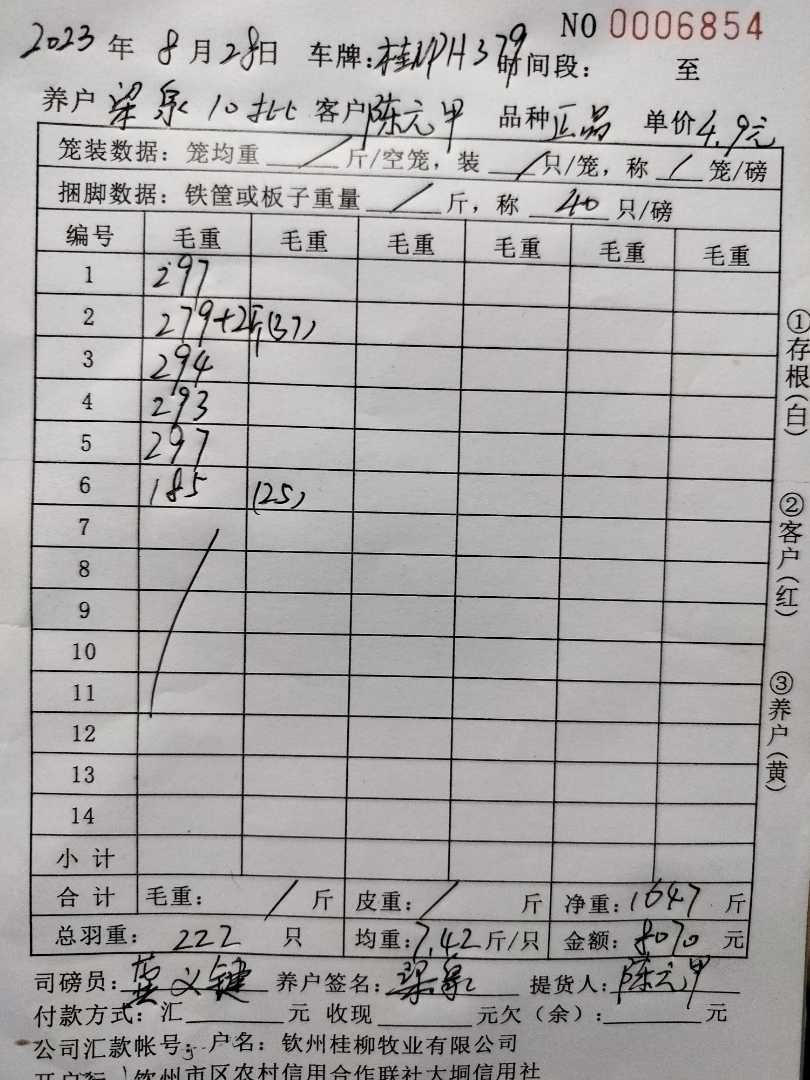 NO 0006854
2023 年 8 月 28 日 车牌: 桂NPH379 时间段: 至
养户 梁泉 10批 客户 陈元甲 品种 正品 单价 4.9元
笼装数据: 笼均重 / 斤/空笼, 装 / 只/笼, 称 / 笼/磅
捆脚数据: 铁筐或板子重量 / 斤, 称 40 只/磅
编号 毛重 毛重 毛重 毛重 毛重 毛重
1 297
2 279+2斤(37)
3 294
4 293
5 297
6 185 (25)
7
8
9
10
11
12
13
14
小 计
合 计 毛重: / 斤 皮重: / 斤 净重: 1647 斤
总羽重: 222 只 均重: 7.42 斤/只 金额: 8070 元
司磅员: 义键 养户签名: 梁泉 提货人: 陈元甲
付款方式: 汇 元 收现 元欠(余): 元
公司汇款帐号: 户名: 钦州桂柳牧业有限公司
开户行 钦州市区农村信用合作联社大垌信用社
①存根(白)
②客户(红)
③养户(黄)